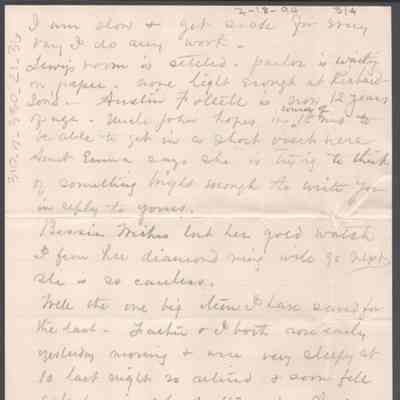 2-18-94 3/4
I am slow & get scold for every
way I do any work.
Lewis room is settled. parlor is waiting
on paper. none light enough at Richard
sons. Austin is now 12 years
of age. Uncle John hopes to
be able to get in a short visit here
Aunt Emma says she is trying to think
of something bright enough to write you
in reply to yours.
Bessie lost her gold watch
I fear her diamond ring will go next.
she is so careless.
Well the one big item I have saved for
the last. Father & I both rose early
yesterday morning & were very sleepy at
10 last night so retired & soon fell